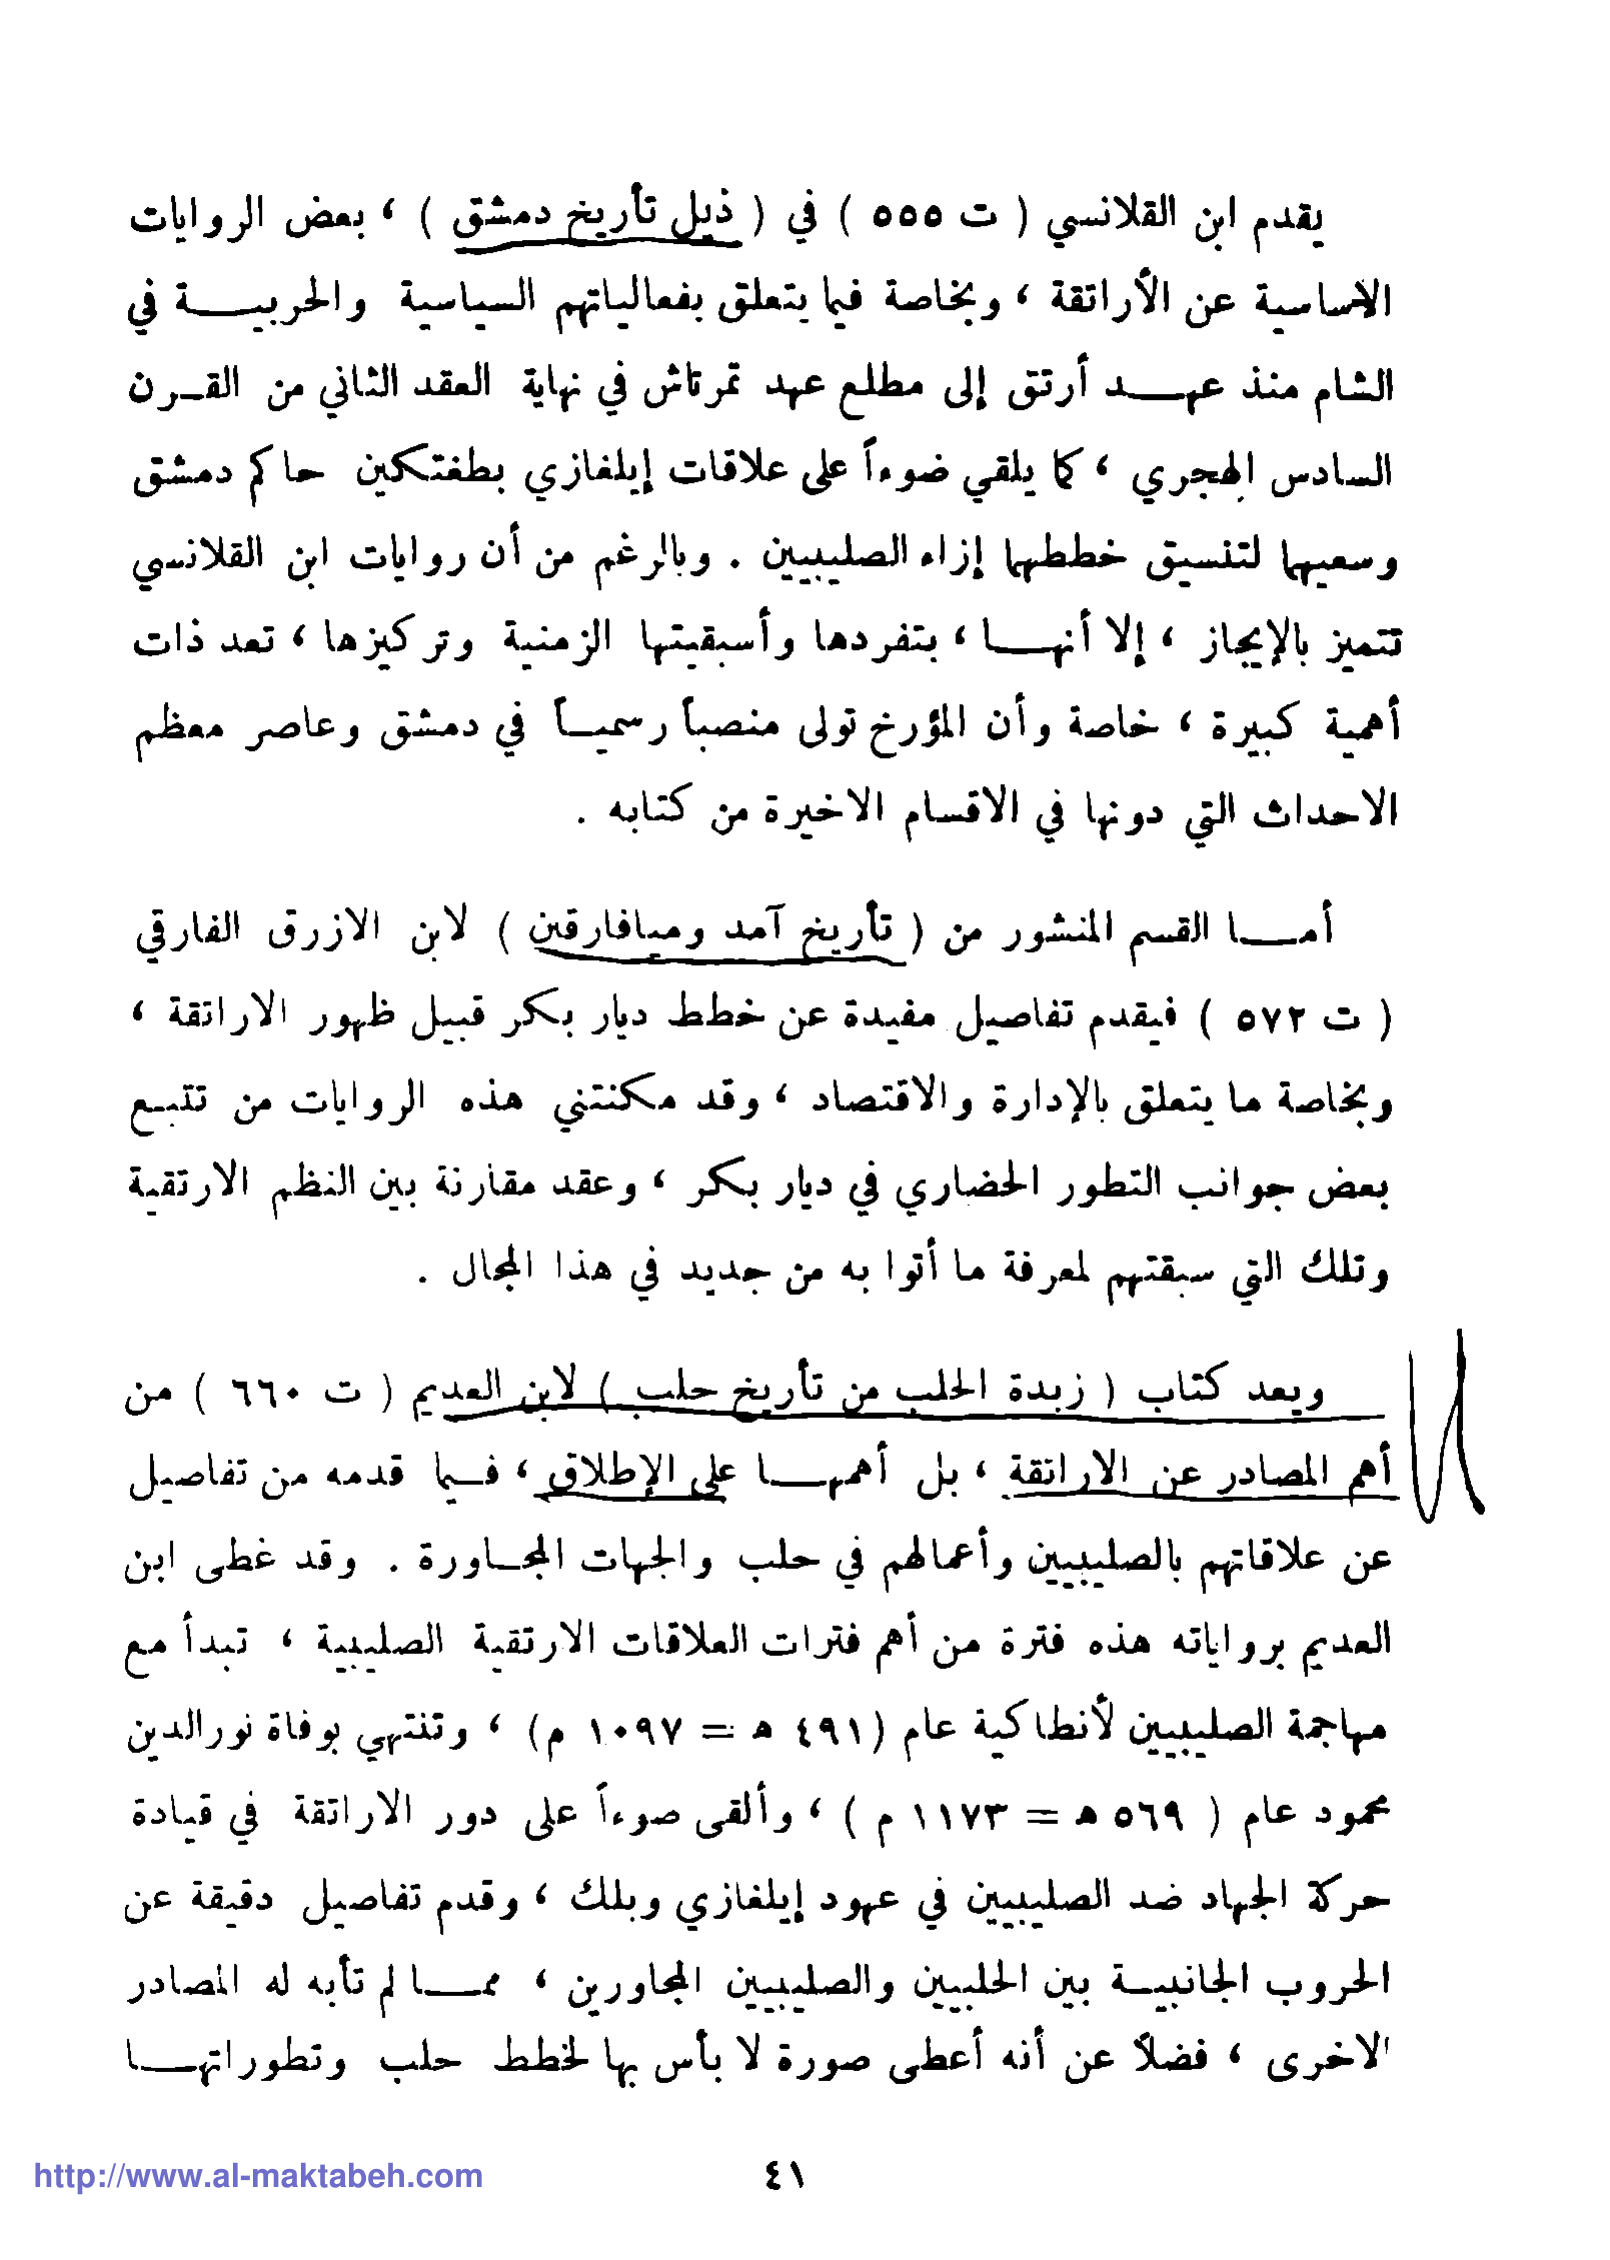 يقدم ابن القلانسي ( ت ٥٥٥ ) في ( ذيل تأريخ دمشق ) ، بعض الروايات
الاساسية عن الأراتقة ، وبخاصة فيما يتعلق بفعالياتهم السياسية والحربيـــة في
الشام منذ عهـــد أرتق إلى مطلع عهد تمرتاش في نهاية العقد الثاني من القـرن
السادس الهجري ، كما يلقي ضوءاً على علاقات إيلغازي بطغتكين حاكم دمشق
وسعيهما لتنسيق خططهما إزاء الصليبيين . وبالرغم من أن روايات ابن القلانسي
تتميز بالإيجاز ، إلا أنهـــا ، بتفردها وأسبقيتها الزمنية وتركيزها ، تعد ذات
أهمية كبيرة ، خاصة وأن المؤرخ تولى منصباً رسميـاً في دمشق وعاصر معظم
الاحداث التي دونها في الاقسام الاخيرة من كتابه .
أمـــا القسم المنشور من ( تأريخ آمد وميافارقين ) لابن الازرق الفارقي
( ت ٥٧٢ ) فيقدم تفاصيل مفيدة عن خطط ديار بكر قبيل ظهور الاراتقة ،
وبخاصة ما يتعلق بالإدارة والاقتصاد ، وقد مكنتني هذه الروايات من تتبـع
بعض جوانب التطور الحضاري في ديار بكر ، وعقد مقارنة بين النظم الارتقية
وتلك التي سبقتهم لمعرفة ما أتوا به من جديد في هذا المجال .
ويعد كتاب ( زبدة الحلب من تأريخ حلب ) لابن العديم ( ت ٦٦٠ ) من
أهم المصادر عن الاراتقة ، بل أهمهـــا على الإطلاق ، فـيما قدمه من تفاصيل
عن علاقاتهم بالصليبيين وأعمالهم في حلب والجهات المجـاورة . وقد غطى ابن
العديم برواياته هذه فترة من أهم فترات العلاقات الارتقية الصليبية ، تبدأ مع
مهاجمة الصليبيين لأنطاكية عام (٤٩١ ه = ١٠٩٧ م) ، وتنتهي بوفاة نورالدين
محمود عام ( ٥٦٩ ه = ١١٧٣ م ) ، وألقى ضوءاً على دور الاراتقة في قيادة
حركة الجهاد ضد الصليبيين في عهود إيلغازي وبلك ، وقدم تفاصيل دقيقة عن
الحروب الجانبيـة بين الحلبيين والصليبيين المجاورين ، ممـــا لم تأبه له المصادر
الاخرى ، فضلاً عن أنه أعطى صورة لا بأس بها لخطط حلب وتطوراتهـــا
http://www.al-maktabeh.com
٤١